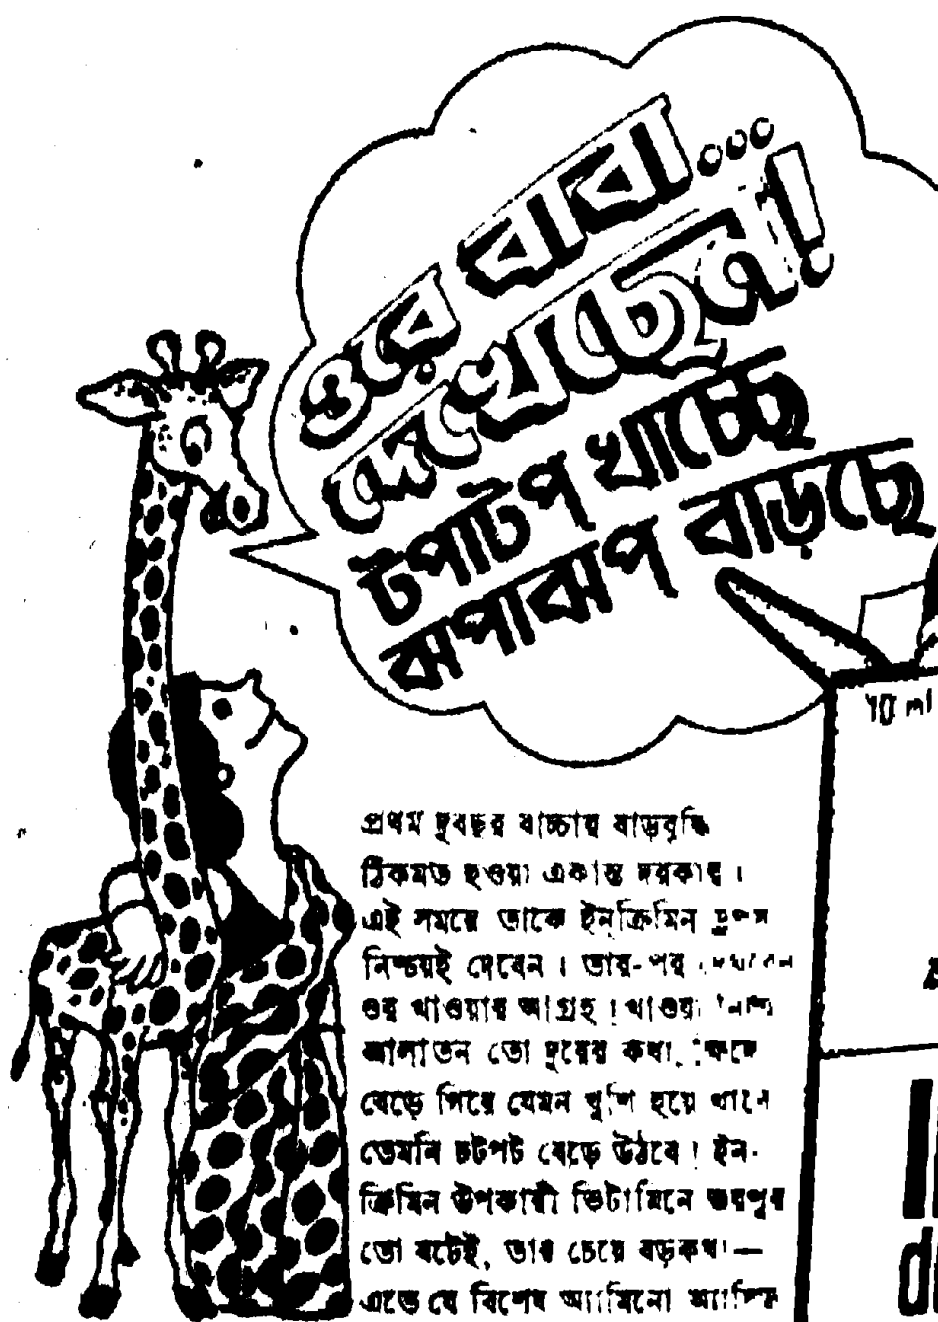 ওরে বাবা...
দেখেছেন!
টপাটপ্ খাচ্ছে
ঝপাঝপ্ বাড়ছে
10 ml
প্রথম দুবছর বাচ্চার বাড়বৃদ্ধি
ঠিকমত হওয়া একান্ত দরকার।
এই সময়ে তাকে ইনক্রিমিন ড্রপস
নিশ্চয়ই দেবেন। তার-পর দেখবেন
ওর খাওয়ার আগ্রহ! খাওয়া নিয়ে
জ্বালাতন তো দূরের কথা, ক্ষিদে
বেড়ে গিয়ে যেমন খুশি হয়ে খাবে
তেমনি চটপট বেড়ে উঠবে! ইন-
ক্রিমিন উপকারী ভিটামিনে ভরপুর
তো বটেই, তার চেয়ে বড়কথা—
এতে যে বিশেষ অ্যামিনো অ্যাসিড